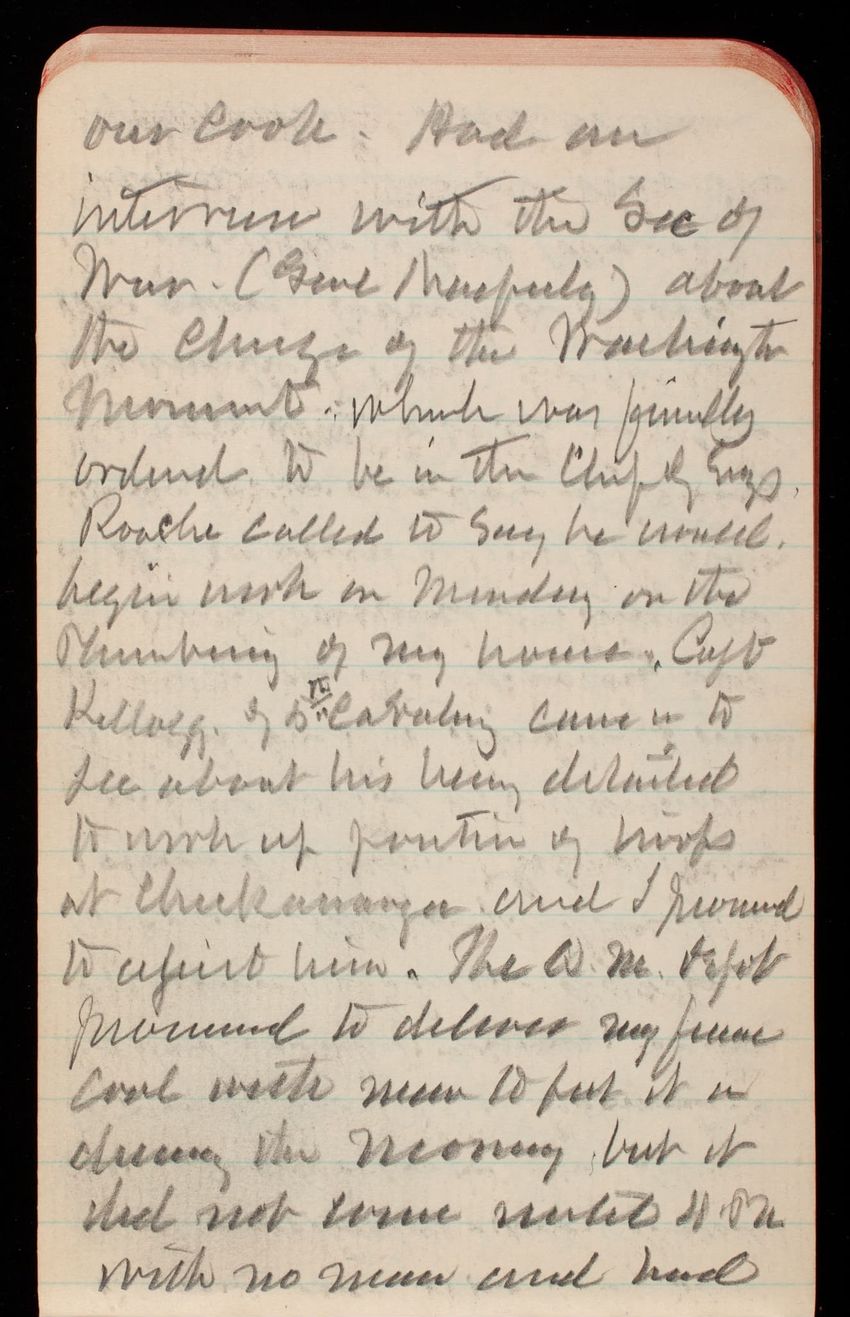 our cook. Had an
interview with the Sec of
War. (Genl) about
the Charge of the Washington
Monument. which was finally
ordered to be in the Chief of Engs.
Roache called to say he would
begin work on Monday on the
Plumbing of my house. Capt
Kellogg. of 5th Cavalry came in to
see about his being detailed
to work up position of troops
at Chickamauga and I promised
to assist him. The Q. M. Depot
promised to deliver my
coal with man to put it in
during the morning but it
did not come until 4 PM
with no man and had